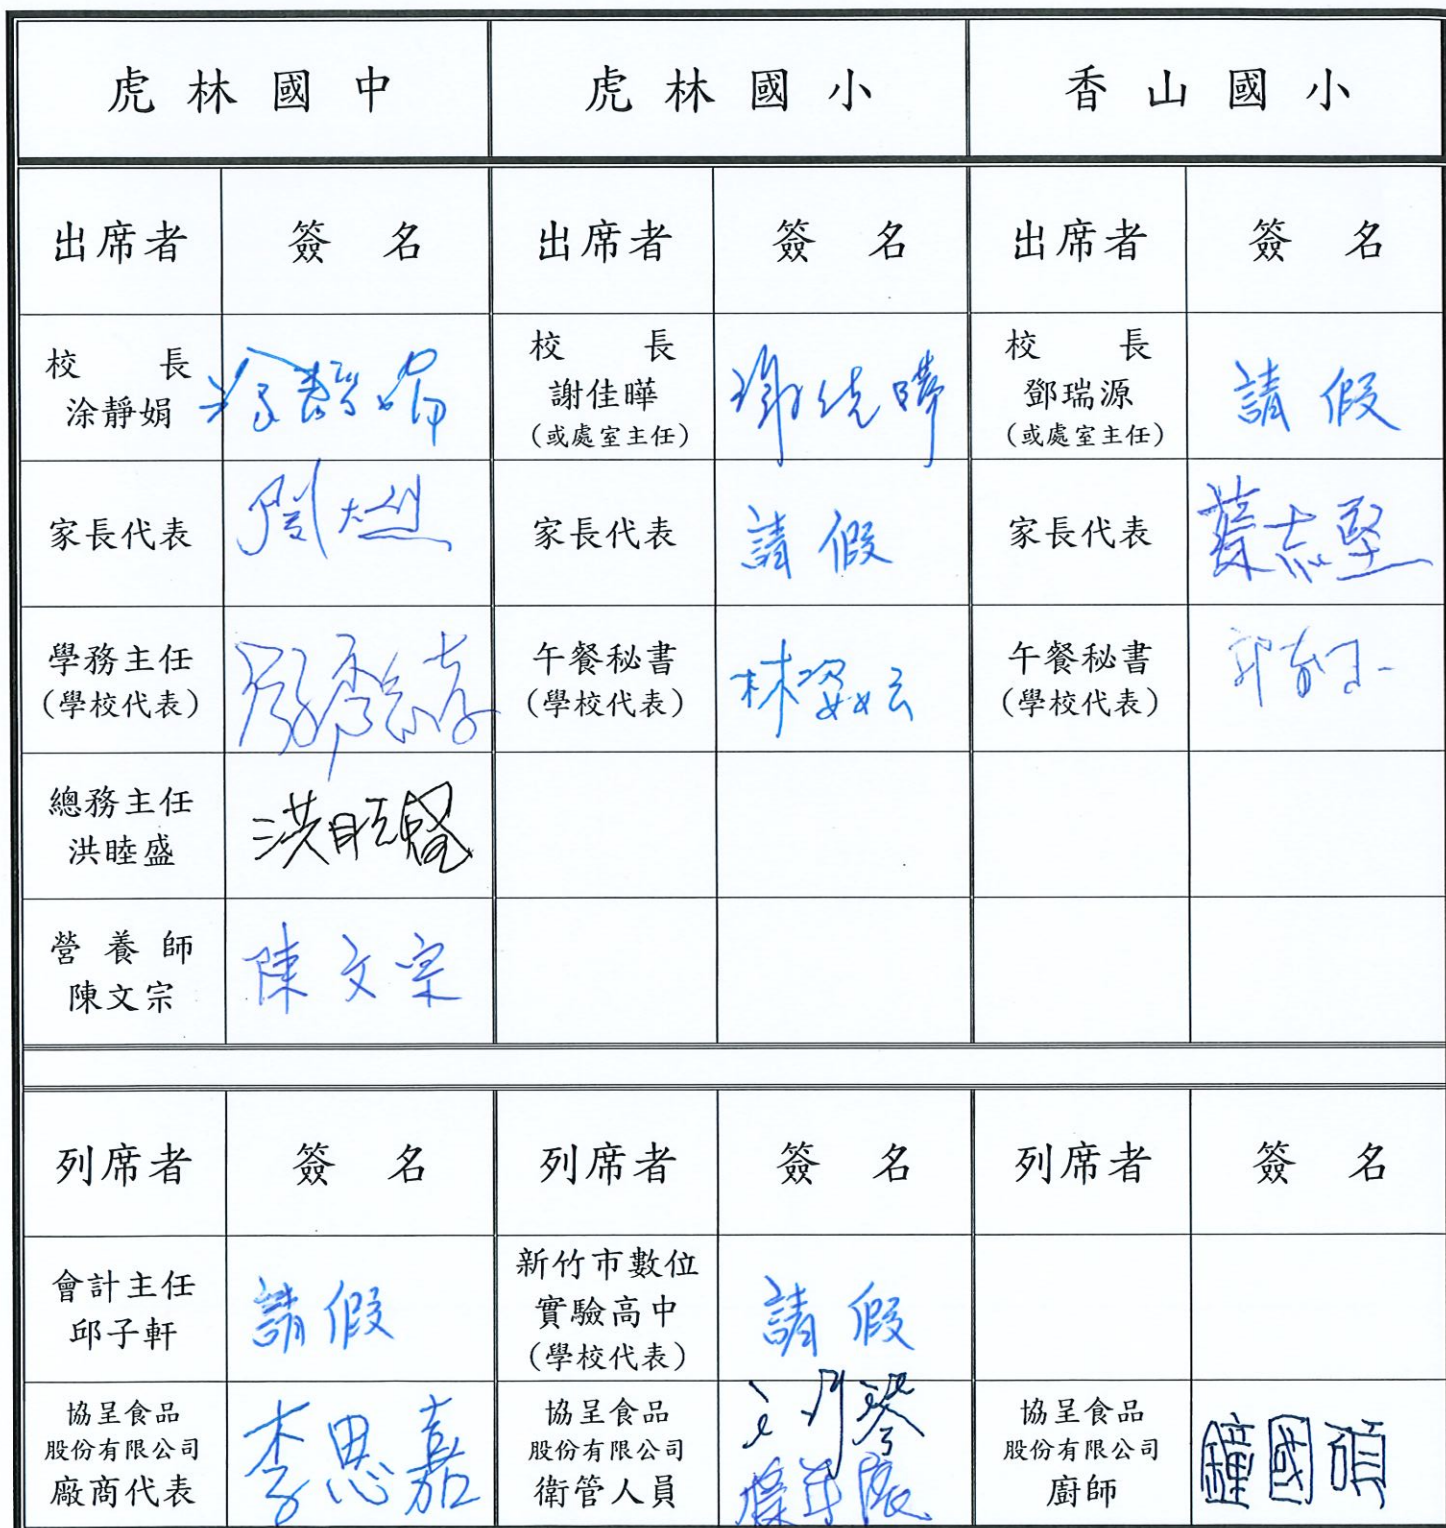 虎林國中 虎林國小 香山國小
出席者 簽名 出席者 簽名 出席者 簽名
校長
涂靜娟
涂靜娟
校長
謝佳曄
(或處室主任)
謝佳曄
校長
鄧瑞源
(或處室主任)
請假
家長代表
家長代表
請假
家長代表
蔡志堅
學務主任
(學校代表)
午餐秘書
(學校代表)
林姿妘
午餐秘書
(學校代表)
總務主任
洪睦盛
洪睦盛
營養師
陳文宗
陳文宗
列席者 簽名 列席者 簽名 列席者 簽名
會計主任
邱子軒
請假
新竹市數位
實驗高中
(學校代表)
請假
協呈食品
股份有限公司
廠商代表
李思嘉
協呈食品
股份有限公司
衛管人員
協呈食品
股份有限公司
廚師
鐘國碩